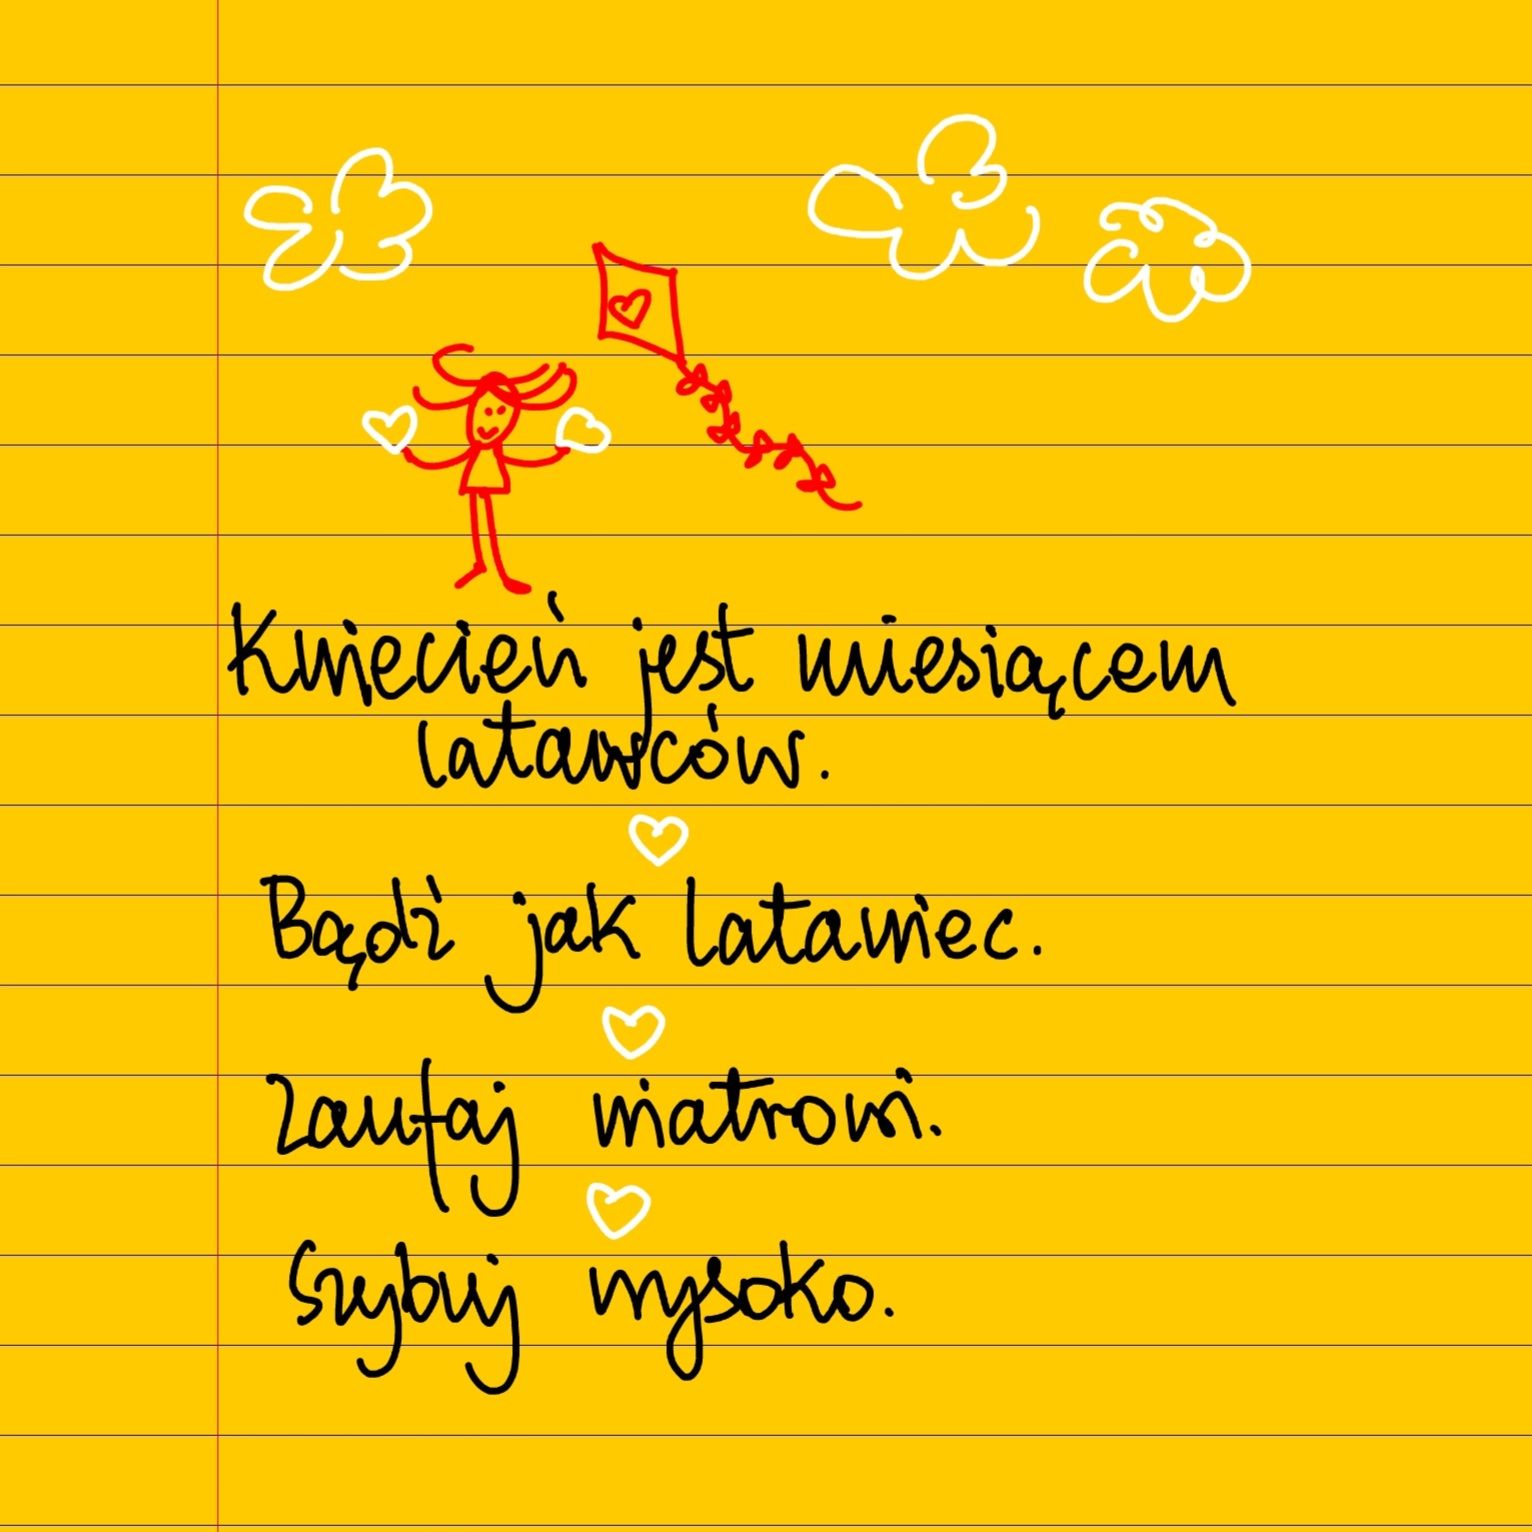 Kwiecień jest miesiącem
latawców.
Bądź jak latawiec.
Zaufaj wiatrowi.
Szybuj wysoko.